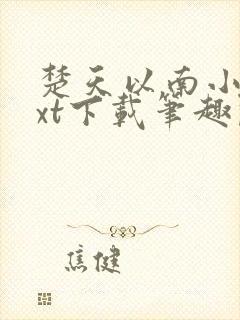 楚天以南小
xt下载笔趣
焦健